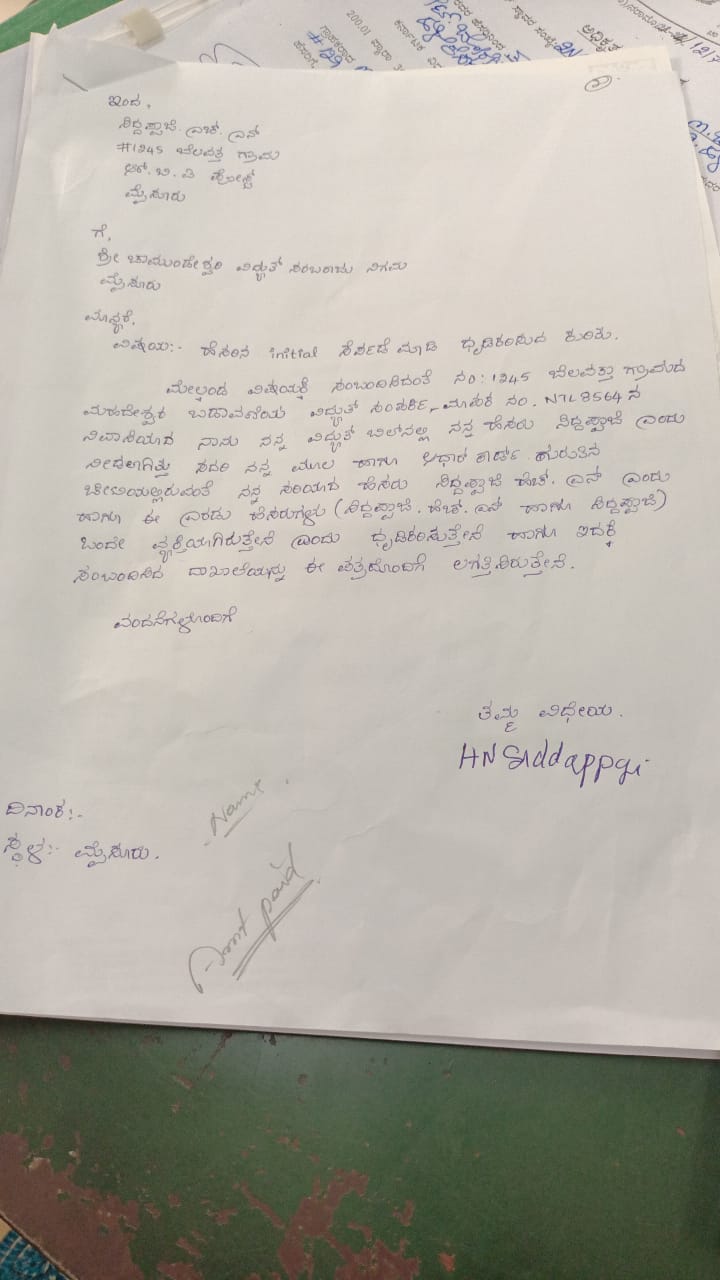 ಇಂದ,
ಸಿದ್ದಪ್ಪಾಜಿ. ಎಚ್. ಎನ್
#1245 ಬೆಲವತ್ತ ಗ್ರಾಮ
ಆರ್. ಬಿ. ಪಿ ಪೋಸ್ಟ್
ಮೈಸೂರು
ಗೆ,
ಶ್ರೀ ಚಾಮುಂಡೇಶ್ವರಿ ವಿದ್ಯುತ್ ಸಂಬರಾಜು ನಿಗಮ
ಮೈಸೂರು
ಮಾನ್ಯರೆ,
ವಿಷಯ:- ಹೆಸರಿನ initial ಸೆರ್ಪಡೆ ಮಾಡಿ ಧೃಡಿಕರಿಸುವ ಕುರಿತು.
ಮೇಲ್ಕಂಡ ವಿಷಯಕ್ಕೆ ಸಂಬಂದಿಸಿದಂತೆ ನಂ:1245 ಬೆಲವತ್ತಾ ಗ್ರಾಮದ
ಮಹದೇಶ್ವರ ಬಡಾವಣೆಯ ವಿದ್ಯುತ್ ಸಂಪರ್ಕ ಮಾಪಕ ನಂ. N7L8564 ನ
ನಿವಾಸಿಯಾದ ನಾನು ನನ್ನ ವಿದ್ಯುತ್ ಬಿಲ್‌ನಲ್ಲಿ ನನ್ನ ಹೆಸರು ಸಿದ್ದಪ್ಪಾಜಿ ಎಂದು
ನೀಡಲಾಗಿತ್ತು ಸದರಿ ನನ್ನ ಮೂಲ ಹಾಗೂ ಆಧಾರ್ ಕಾರ್ಡ್ ಗುರುತಿನ
ಚೀಟಿಯಲ್ಲಿರುವಂತೆ ನನ್ನ ಸರಿಯಾದ ಹೆಸರು ಸಿದ್ದಪ್ಪಾಜಿ ಹೆಚ್. ಎನ್ ಎಂದು
ಹಾಗೂ ಈ ಎರಡು ಹೆಸರುಗಳು (ಸಿದ್ದಪ್ಪಾಜಿ. ಹೆಚ್. ಎನ್ ಹಾಗೂ ಸಿದ್ದಪ್ಪಾಜಿ)
ಒಂದೇ ವ್ಯಕ್ತಿಯಾಗಿರುತ್ತೇನೆ ಎಂದು ಧೃಡಿಕರಿಸುತ್ತೇನೆ ಹಾಗೂ ಇದಕ್ಕೆ
ಸಂಬಂದಿಸಿದ ದಾಖಲೆಯನ್ನು ಈ ಪತ್ರದೊಂದಿಗೆ ಲಗತ್ತಿಸಿರುತ್ತೇನೆ.
ವಂದನೆಗಳೊಂದಿಗೆ
ತಮ್ಮ ವಿಧೇಯ.
HN Siddappaji
ದಿನಾಂಕ:-
ಸ್ಥಳ:- ಮೈಸೂರು.
Name
Amt paid